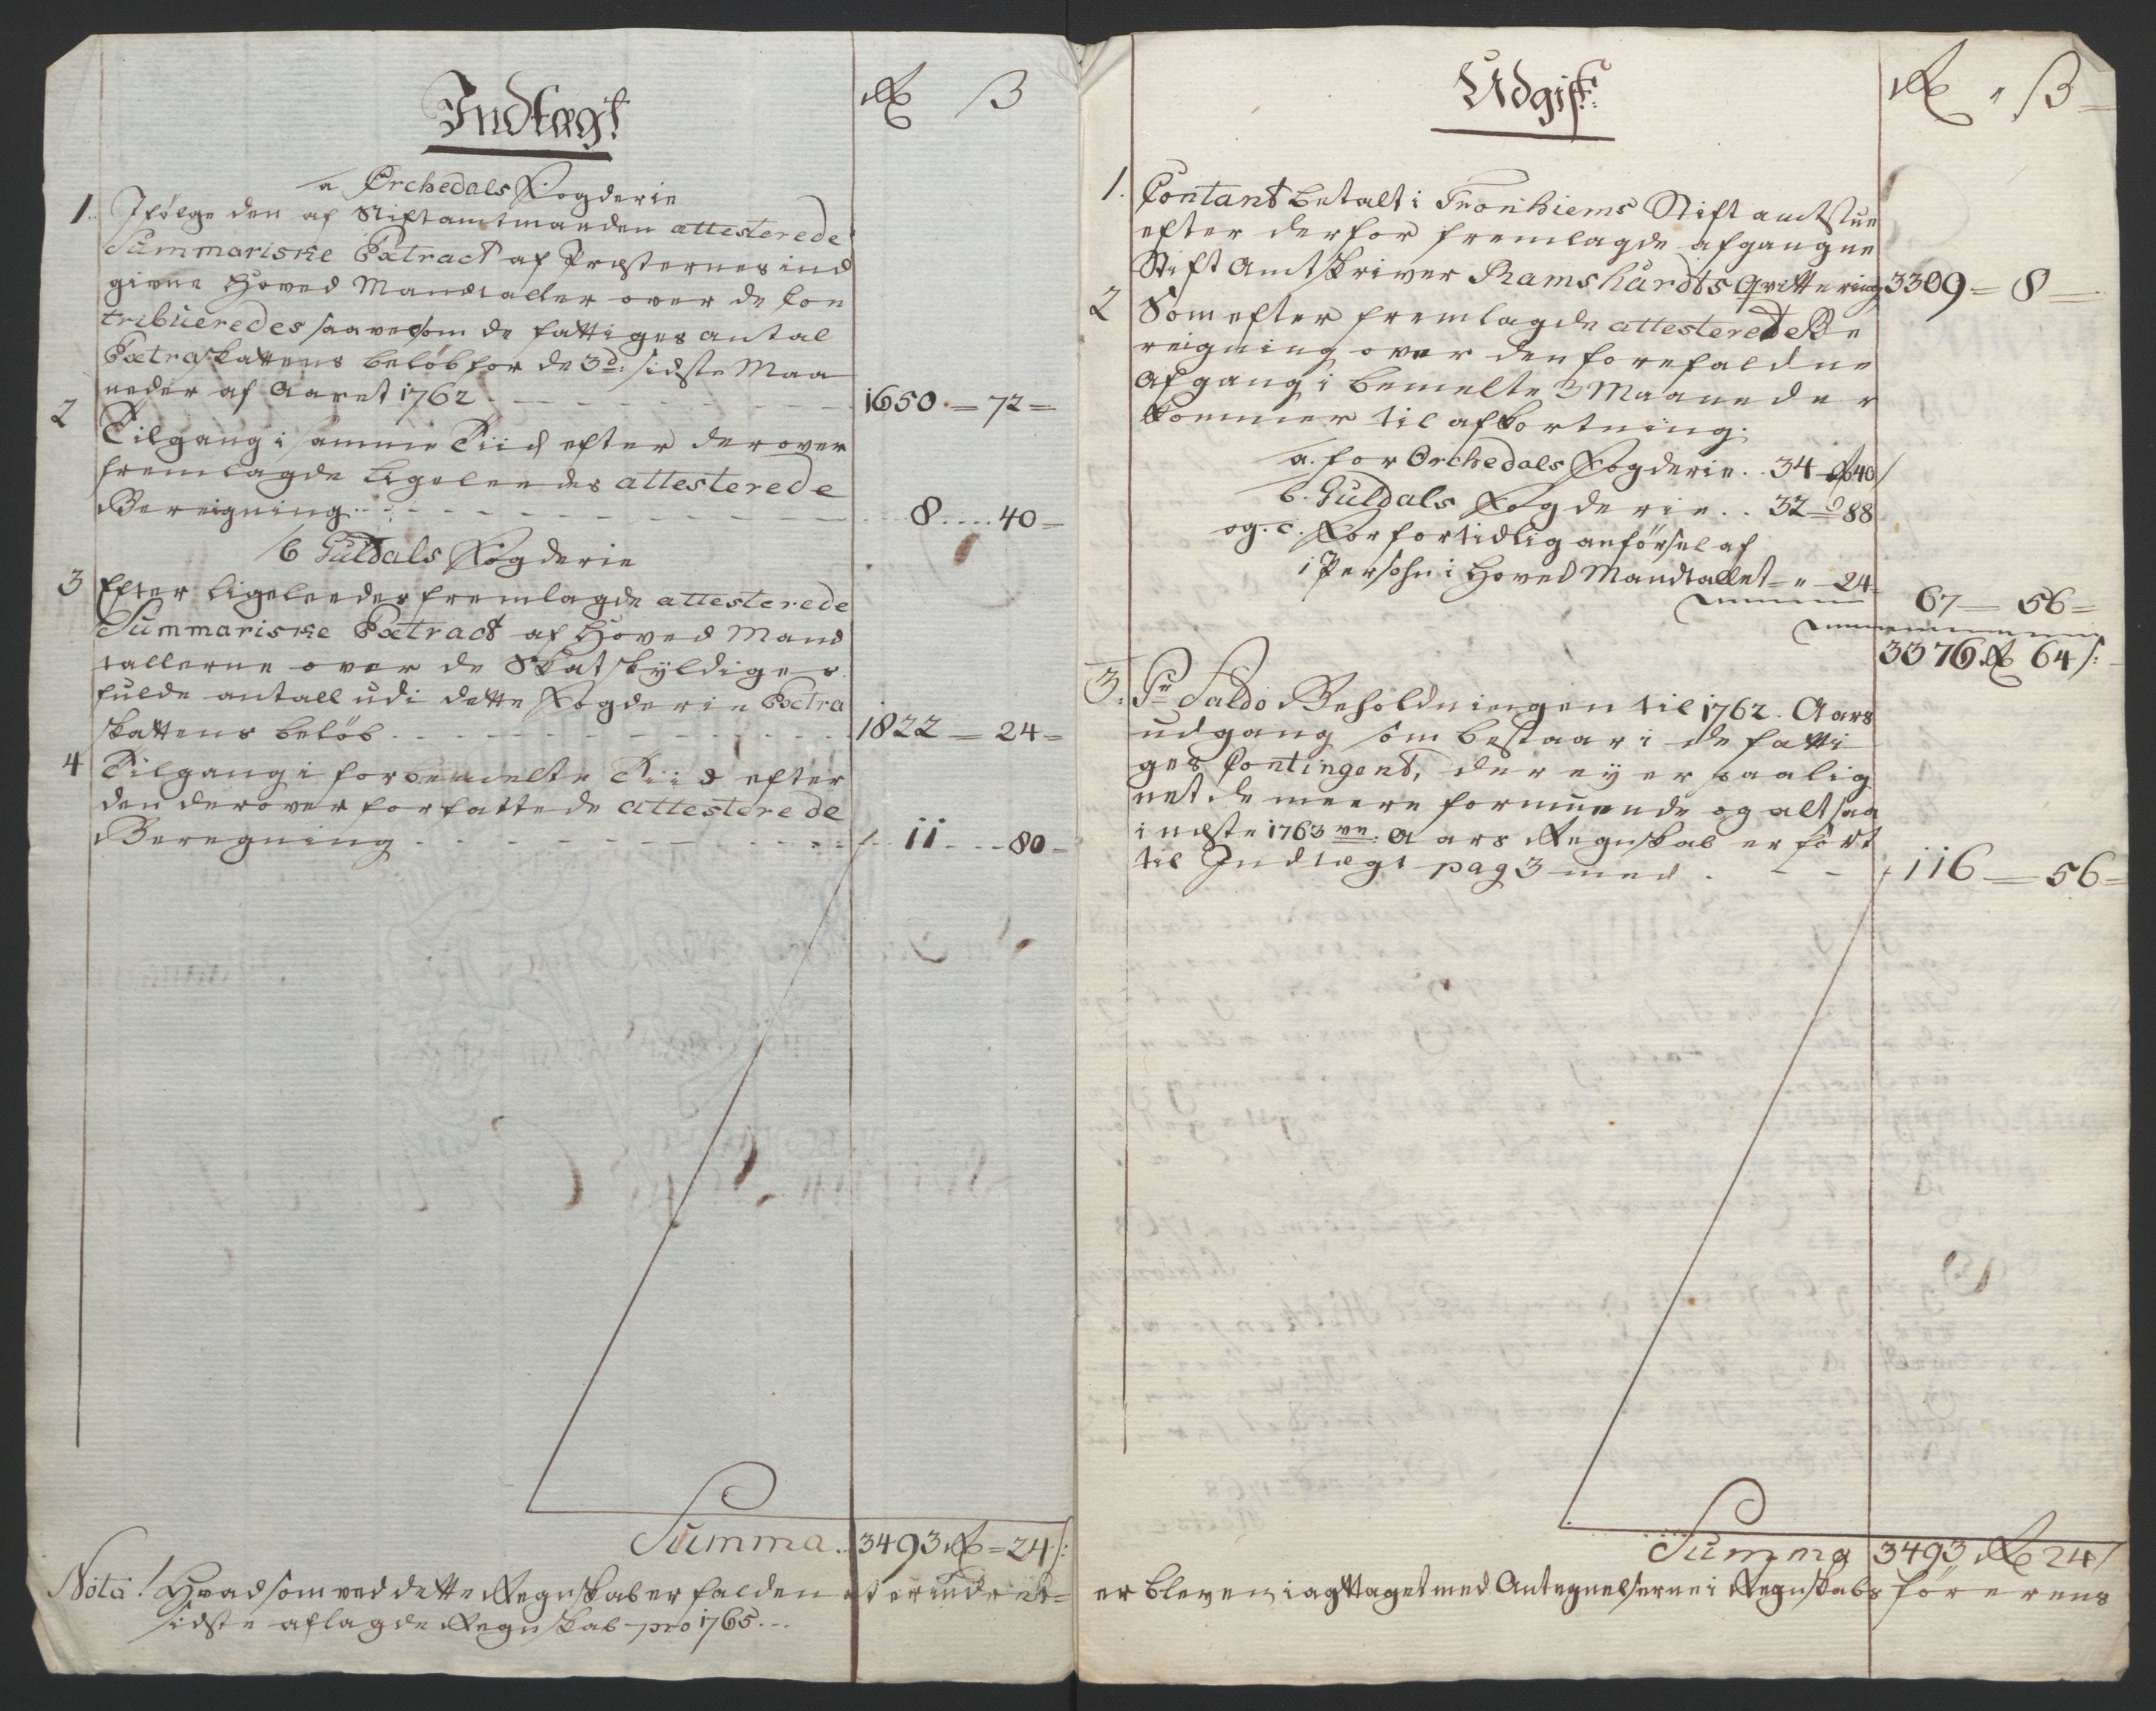 Indtægt
Rdr ß
a Orchedals Fogderie
1. Ifölge den af Stiftamtmanden attesterede
Summariske Extract af Præsternes ind
givne Hoved Mandtaller over de Con
tribueredes saavelsom de fattiges antal
Extraskattens belöb for de 3de: sidste Maa
neder af Aaret 1762 - - - 1650 = 72 =
2 Tilgang i samme Tiid efter derover
fremlagde ligeleedes attesterede
Bereigning - - - 8 - - 40 =
b Guldals Fogderie
3 Efter ligeleedes fremlagde attesterede
Summariske Extract af Hoved Mand
tallerne over de Skatskyldiges
fulde antall udi dette Fogderie Extra
skattens belöb - - - 1822 = 24 =
4 Tilgang i forbemelte Tiid efter
den derover forfattede attesterede
Beregning - - - 11 - - 80 =
Summa. 3493 Rdr = 24 s:
Udgift:
Rdr " ß
1. Contant betalt i Tronhiems Stiftamtstue
efter derfor fremlagde afgangne
Stift Amtskriver Ramshardts Qvittering 3309 = 8 =
2 Som efter fremlagde attesterede Be
reigning over den forefaldne
Afgang i bemelte 3 Maaneder
kommer til afkortning.
a. for Orchedals Fogderie . . 34 Rdr 40 s
b. Guldals Fogderie . . 32 = 88
og. c. For fortidlig anförsel af
1 Persohn i Hoved Mandtallet - " - 24
67 = 56 =
3376 Rdr 64 s:
3. Pr Saldo Beholdningen til 1762. Aars
udgang som bestaar i de fatti
ges Contingent, der ey er paalig
net de meere formuende og altsaa
i næste 1763 ve. Aars Regnskab er fört
til Indtægt pag 3 med . - - 116 = 56 =
Summa 3493 Rdr 24 s
Nota! Hvad som ved dette Regnskab er falden at erindre er bleven iagttaget med Antegnelserne i Regnskabsförerens
sidste aflagde Regnskab pro 1765. - -